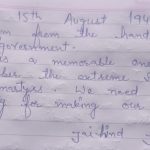 15th August 194
from the hand
government.
is a memorable one
the extreme s
martyrs. We need
for making our
jai-hind J